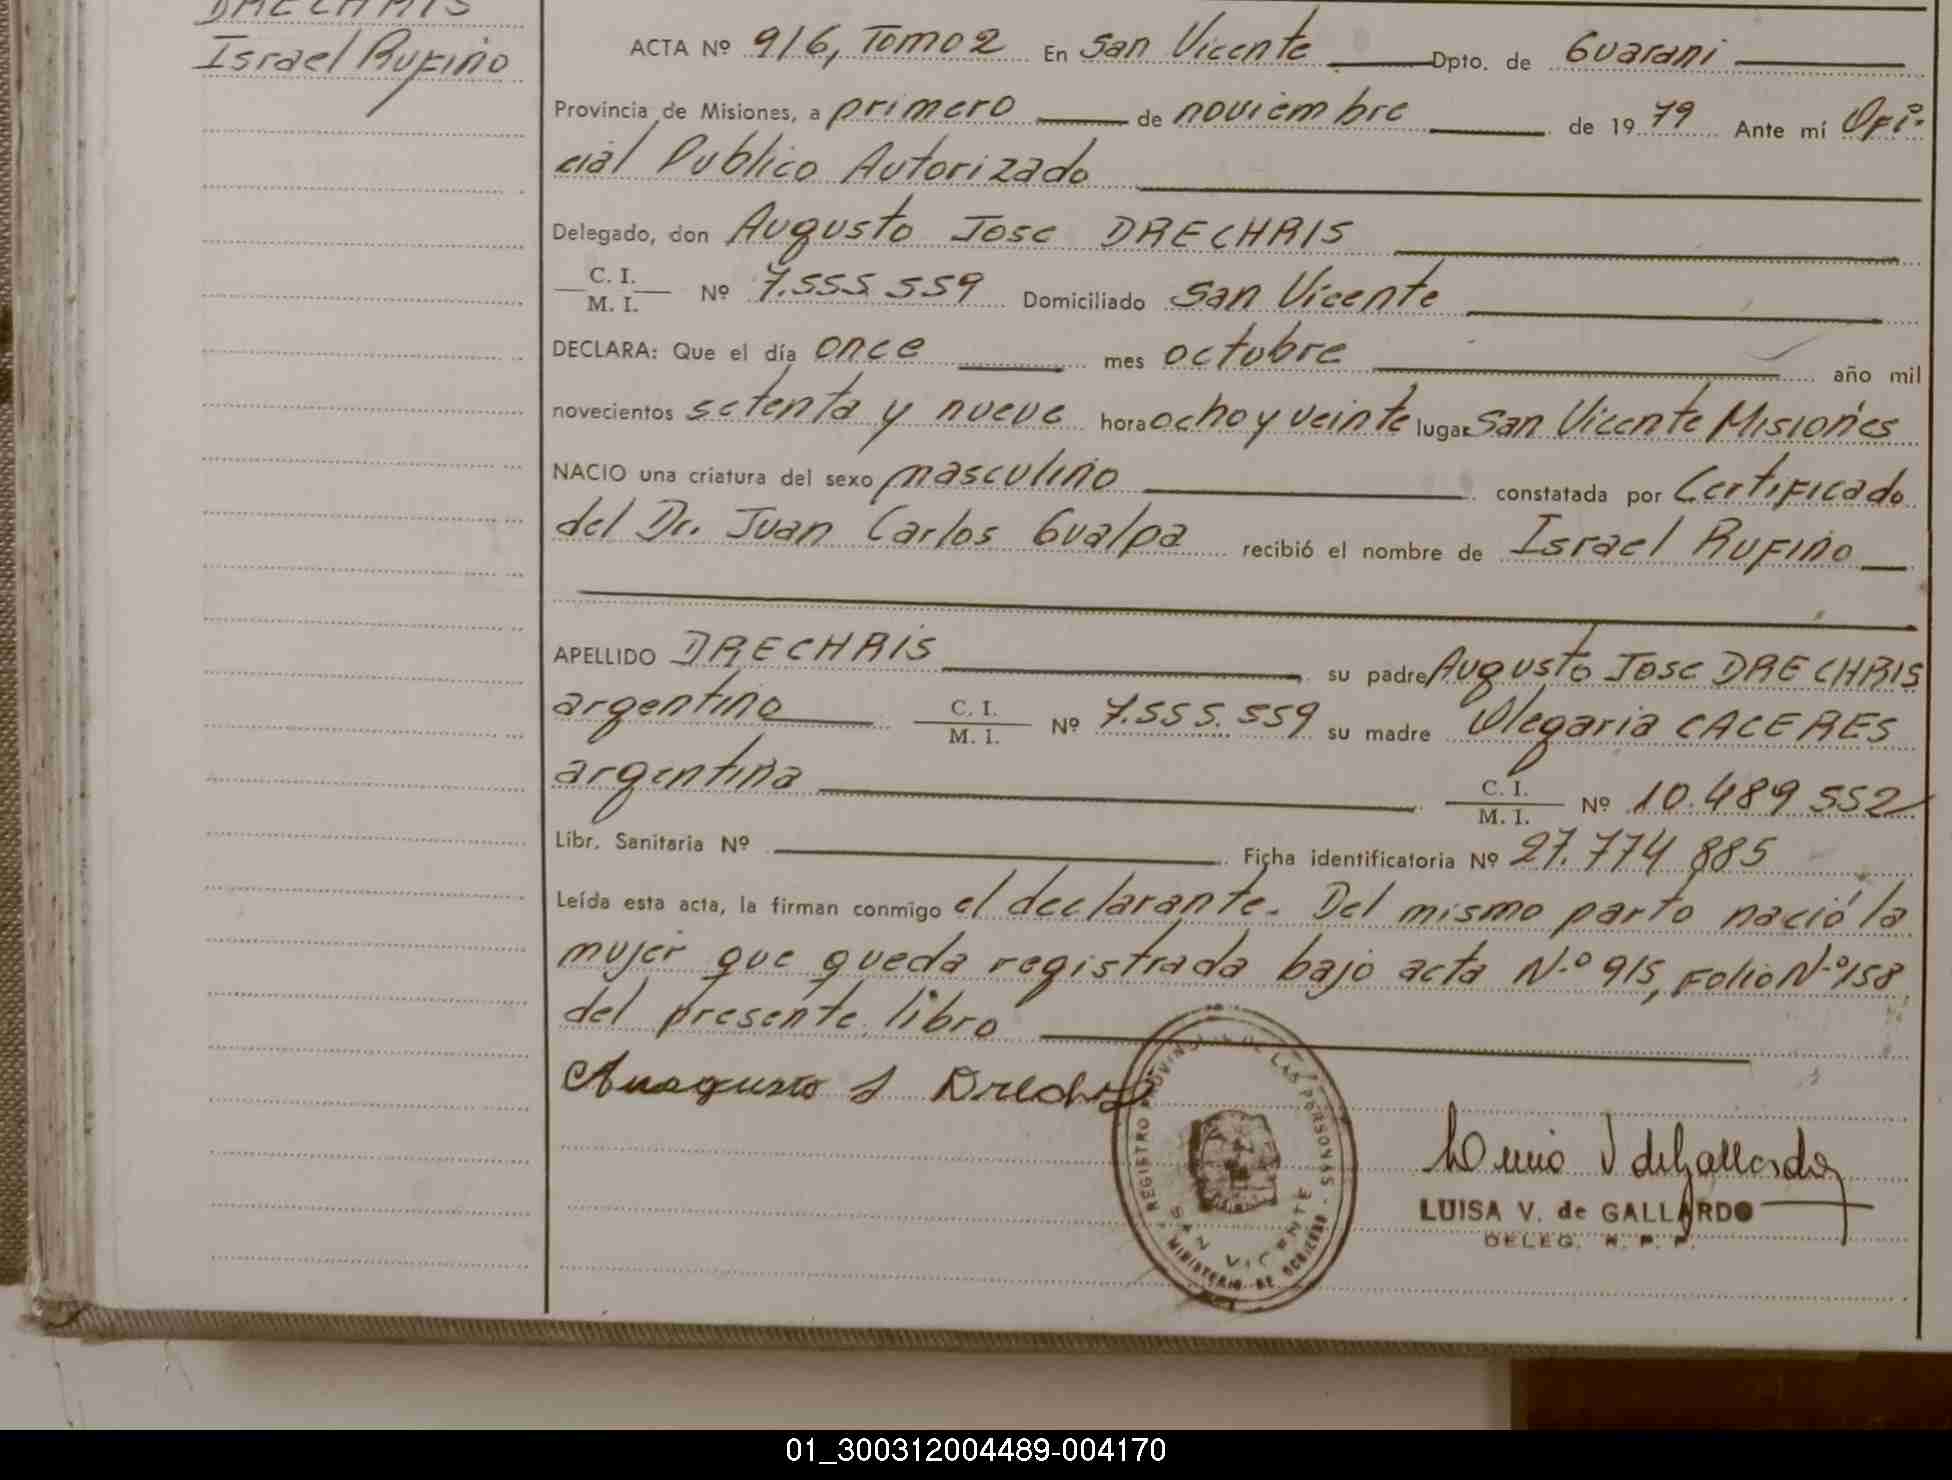 DRECHRIS
Israel Rufino
ACTA Nº 916, Tomo 2 En San Vicente Dpto. de Guarani
Provincia de Misiones, a primero de noviembre de 1979 Ante mí Ofi-
cial Publico Autorizado
Delegado, don Augusto Jose DRECHRIS
C. I.
M. I. Nº 7.555.559 Domiciliado San Vicente
DECLARA: Que el día once mes octubre año mil
novecientos setenta y nueve hora ocho y veinte lugar San Vicente Misiones
NACIO una criatura del sexo masculino constatada por Certificado
del Dr. Juan Carlos Gualpa recibió el nombre de Israel Rufino
APELLIDO DRECHRIS su padre Augusto Jose DRECHRIS
argentino C. I. M. I. Nº 7.555.559 su madre Olegaria CACERES
argentina C. I. M. I. Nº 10.489.552
Libr. Sanitaria Nº Ficha identificatoria Nº 27.774.885
Leída esta acta, la firman conmigo el declarante. Del mismo parto nació la
mujer que queda registrada bajo acta N.º 915, Folio N.º 158
del presente libro
REGISTRO PROVINCIAL DE LAS PERSONAS
SAN VICENTE
MINISTERIO DE GOBIERNO
LUISA V. de GALLARDO
DELEG. R. P. P.
01_300312004489-004170